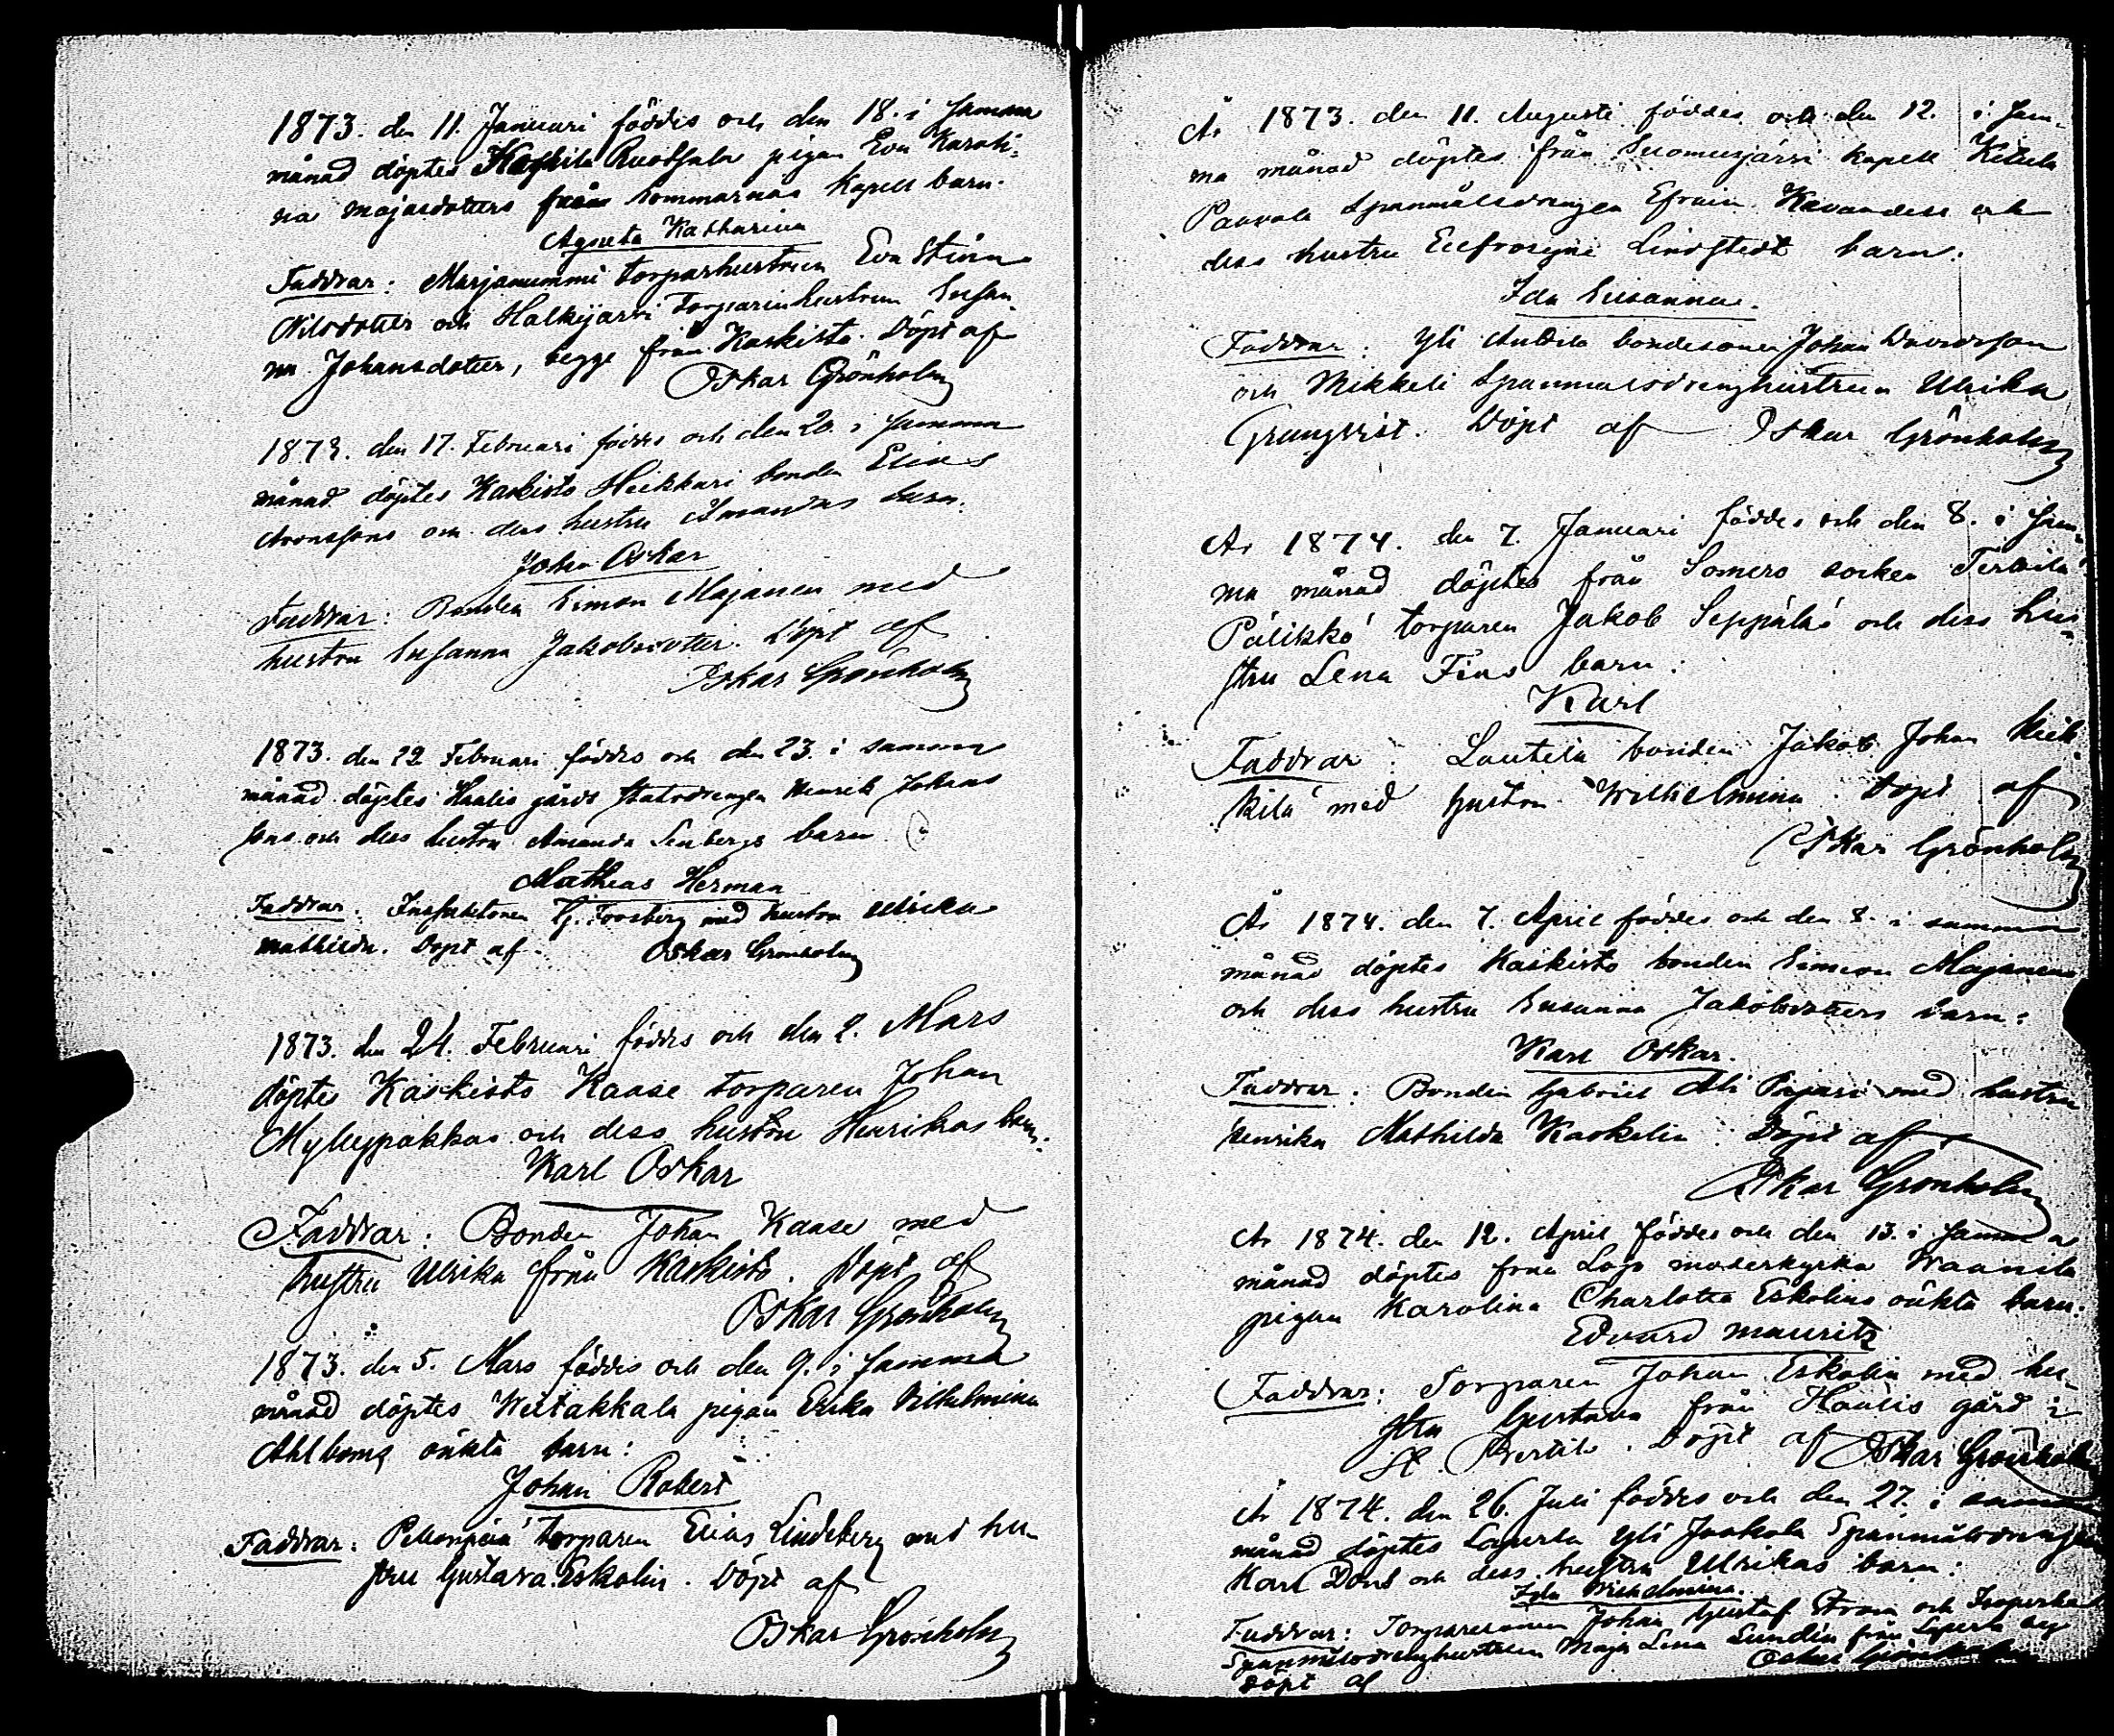 1873. den 11. Januari föddes och den 18. i samma
månad döptes Ruotsala pigan Eva Karoli-
na Majasdotters från Sommarnäs Kapell barn.
Agneta Katharina
Faddrar: Marjanummi torparhustrun Eva Stina
Nilsdotter och Halkijarvi Torparinhustrun Susan-
na Johansdotter, begge från Kaskisto. Döpt af
Oskar Grönholm
1873. den 17. Februari föddes och den 20. i samma
månad döptes Kaskisto Heikkari bonden Elias
Aronssons och dess hustru Amandas barn.
Johan Oskar
Faddrar: Bonden Simon Majanen med
hustru Susanna Jakobsdotter. Döpt af
Oskar Grönholm
1873. den 22 Februari föddes och den 23. i samma
månad döptes Haalis gårds statodrengen Henrik Johans
sons och dess hustru Amanda Lenbergs barn
Mathias Herman
Faddrar: Inspektoren G. Forsberg med hustru Ulrika
Mathilda. Döpt af Oskar Grönholm
1873. den 24. Februari föddes och den 2. Mars
döptes Kaskisto Kaase torparen Johan
Myllypakkas och dess hustru Henrikas barn:
Karl Oskar
Faddrar: Bonden Johan Kaase med
hustru Ulrika från Kaskisto. Döpt af
Oskar Grönholm
1873. den 5. Mars föddes och den 9. i samma
månad döptes Wiitakkala pigan Erika Vilhelmina
Ahlboms oäkta barn:
Johan Robert
Faddrar: torparen Elias Lindeberg med hu-
stru Gustava Eskolin. Döpt af
Oskar Grönholm
År 1873. den 11. Augusti föddes och den 12. i sam-
ma månad döptes från Suomusjärvi kapell Kitula
Paavola Spanmålsdrengen Efraim Kavanders och
dess hustru Eufrosyne Lindstedt barn:
Ida Susanna.
Faddrar: Yli Anttila bondesonen Johan Davidsson
och Mikkeli Spanmålsdrenghustrun Ulrika
Grungvist. Döpt af Oskar Grönholm
År 1874. den 7. Januari föddes och den 8. i sam-
ma månad döptes från Somero socken Terttilä
Pälikkö torparen Jakob Seppälä och dess hu-
stru Lena Fins barn:
Karl
Faddrar: Lautela bonden Jakob Johan Kiik-
kilä med hustru Wilhelmina. Döpt af
Oskar Grönholm
År 1874. den 7. April föddes och den 8. i samma
månad döptes Kaskisto bonden Simeon Majanens
och dess hustru Susanna Jakobsdotters barn:
Karl Oskar.
Faddrar: Bonden Gabriel Ali Pajari med hustru
Henrika Mathilda Kaskelin. Döpt af
Oskar Grönholm
År 1874. den 12. April föddes och den 13. i samma
månad döptes från Lojo moderkyrka Waanila
pigan Karolina Charlotta Eskolins oäkta barn:
Edvard Mauritz
Faddrar: Torparen Johan Eskolin med hu-
stru Gustava från Haalis gård i
St. Bertils. Döpt af Oskar Grönholm
År 1874. den 26. Juli föddes och den 27. i samma
månad döptes Laperla Yli Jaakola Spanmålsdrengen
Karl Dons och dess hustru Ulrikas barn:
Ida Wilhelmina.
Faddrar: Torparesonen Johan Gustaf Strom och
Spanmålsdrenghustrun Maja Lena Lundin från Laperla
Döpt af Oskar Grönholm